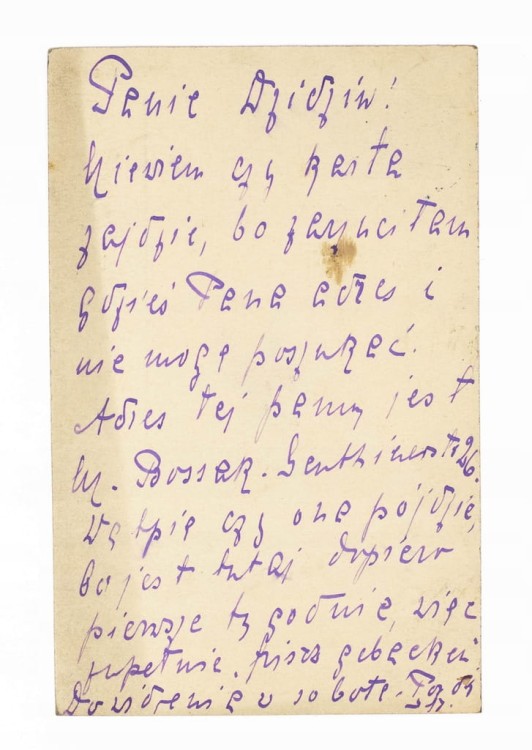 Panie Dzidziu!
Niewiem czy karta
zajdzie, bo zarzuciłam
gdzieś Pana adres i
nie mogę poszukać.
Adres tej panny jest
M. Bossak. Genthinerstr 26.
Wątpię czy ona pójdzie,
bo jest tutaj dopiero
pierwsze tygodnie, więc
zupełnie „frisch gebacken".
Do widzenia w sobotę.